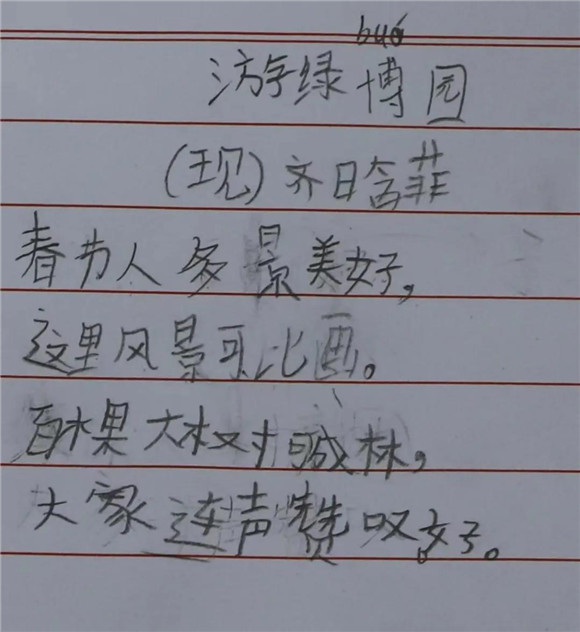 buó
游绿博园
(现)齐晗菲
春节人多景美好，
这里风景可比画。
百木果大树成林，
大家连声赞叹好。